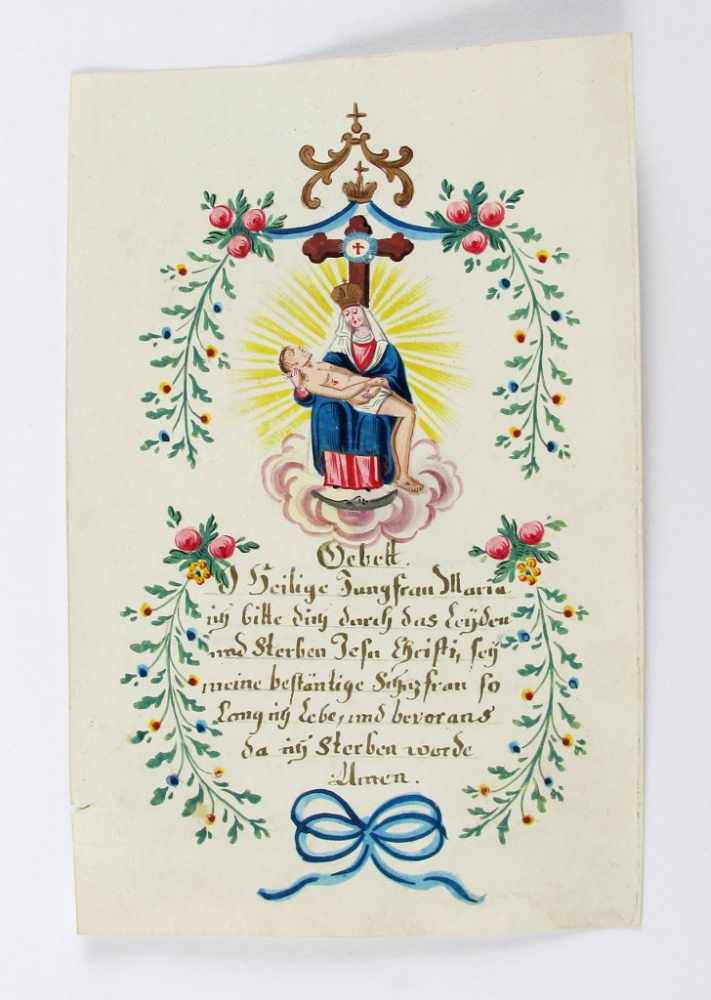 Gebett.
O Heilige Jungfrau Maria
ich bitte dich durch das Leÿden
und Sterben Jesu Christi, seÿ
meine beständige Schuzfrau so
Lang ich Lebe, und bevoraus
da ich Sterben werde
Amen.